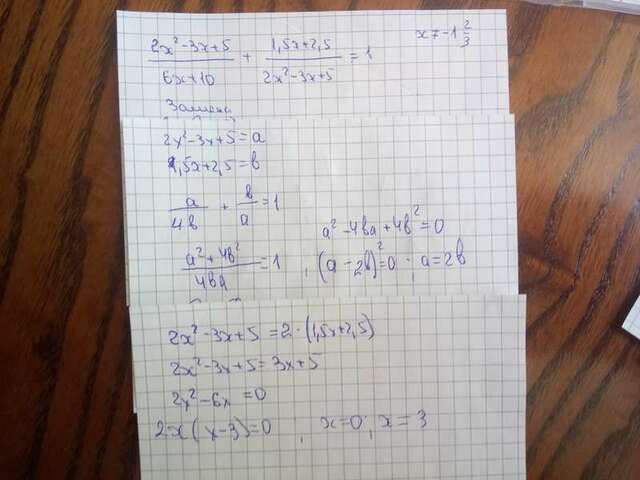 (2x²-3x+5)/(6x+10) + (1,5x+2,5)/(2x²-3x+5) = 1    x≠-1 2/3
Замена
2x²-3x+5=a
1,5x+2,5=b
a/4b + b/a = 1    a²-4ba+4b²=0
(a²+4b²)/4ba = 1 ; (a-2b)²=0; a=2b
2x²-3x+5=2·(1,5x+2,5)
2x²-3x+5=3x+5
2x²-6x=0
2x(x-3)=0 ; x=0; x=3